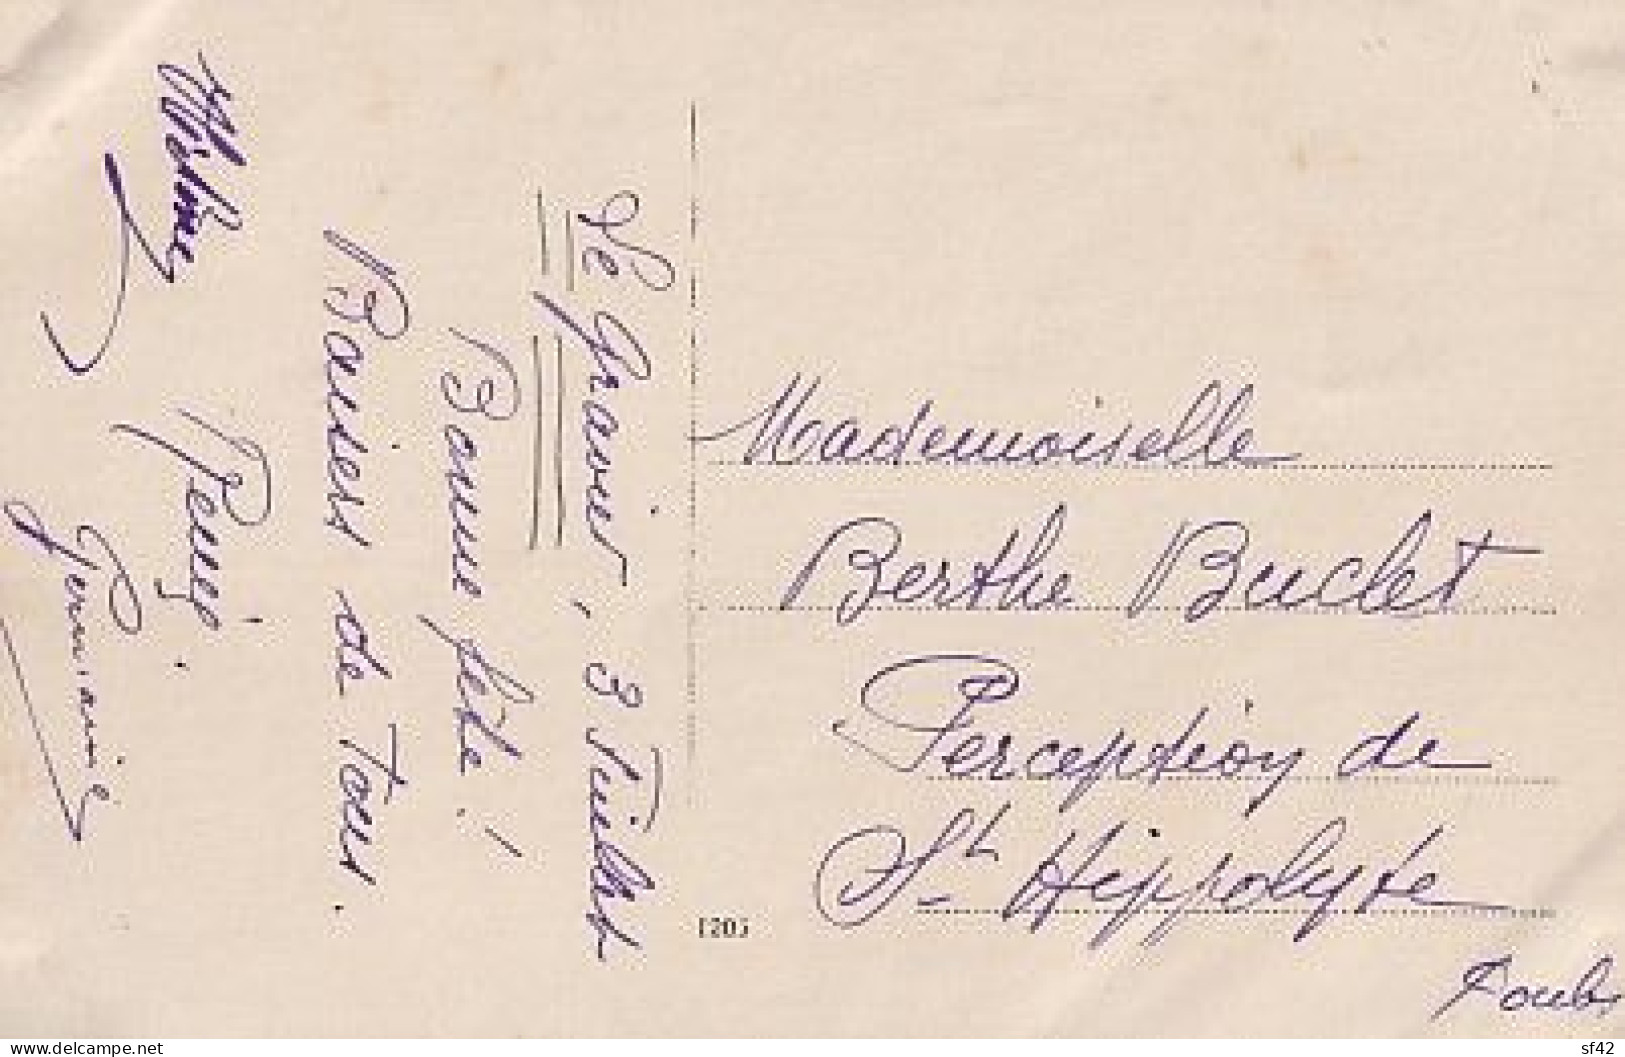 Le Gravier, 3 Juillet
Bonne fête !
Baisers de Tous.
René.
Germaine
Mademoiselle
Berthe Buclet
Perception de
St Hippolyte
Doubs
1205
delcampe.net
sf42